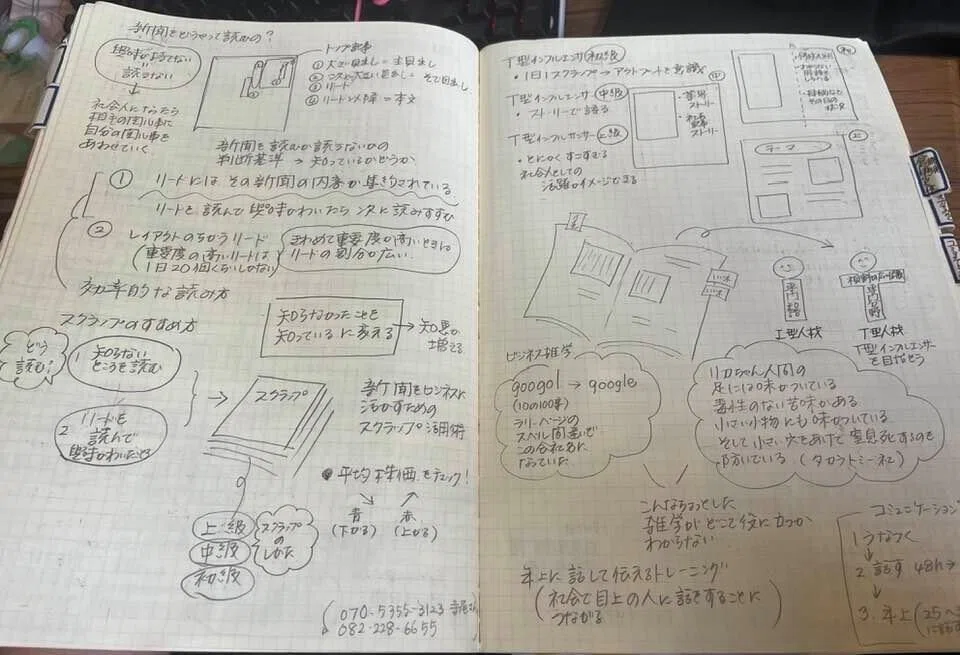 新聞をどうやって読むの?
興味が持てない
読まない
社会人になったら
相手の関心事に
自分の関心事を
あわせていく
トップ記事
① 大きい見出し=主見出し
② 次に大きい見出し=そで見出し
③ リード
④ リードの次の層=本文
新聞を読むか読まないかの
判断基準 → 知っているかどうか
① リードにはその新聞の内容が集約されている
リードを読んで興味がわいたら次に読みすすむ
② レイアウトのちがうリード
(重要度の高いリードは
1日20個くらいしかない)
きわめて重要度が高いときは
リードの割合が広い
効率的な読み方
スクラップのすすめ方
知らなかったことを
知っているに変える
→ 知恵が
増える
どう
読む?
1 知らない
ところを読む
2 リードを
読んで
興味がわいたとき
→
スクラップ
新聞をビジネスに
活かすための
スクラップ活用術
● 平均株価をチェック!
青
(下がる)
赤
(上がる)
上級
中級
初級
スクラップ
の
しかた
070-5355-3123
082-228-6655
T型インフルエンサー 初級
・1日1スクラップ→アウトプットを意識
T型インフルエンサー 中級
・ストーリーで語る
T型インフルエンサー 上級
・とにかくすごすぎる
社会人としての
活躍がイメージできる
初
中
・世界
ストーリー
・社会
記事
ストーリー
上
テーマ
専門知識
I型人材
専門知識
T型人材
T型インフルエンサー
を目ざそう
ビジネス雑学
googol → google
(10の100乗)
ラリーページの
スペル間違いで
この会社名に
なっていた
リカちゃん人間の
足には味がついている
毒性のない苦味がある
小さい小物にも味がついている
そして小さい穴をあけて窒息死するのを
防いでいる (タカラトミー社)
こんなちょっとした
雑学がどこで役に立つか
わからない
年上に話して伝えるトレーニング
(社会で目上の人に話をすることに
つながる)
コミュニケーション
1 うなづく
↓
2 話す 48h
↓
3. 年上